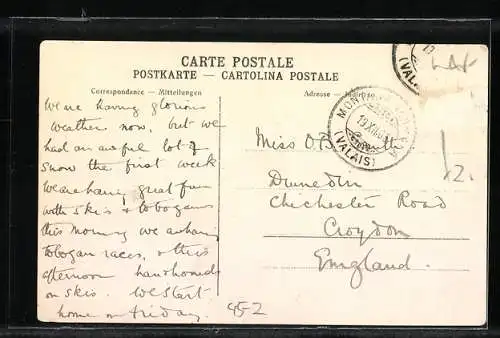 CARTE POSTALE
POSTKARTE — CARTOLINA POSTALE
Correspondence — Mitteilungen
Adresse
We are having glorious
weather now, but we
had an awful lot of
snow the first week
We are having great fun
with skis & tobogans
this morning we are having
tobogan races, & this
afternoon
on skis. We start
home on friday.
MONTANA
(VALAIS)
(VALAIS
Miss O.B.
Dunedin
Chichester Road
Croydon
England.
12.
952